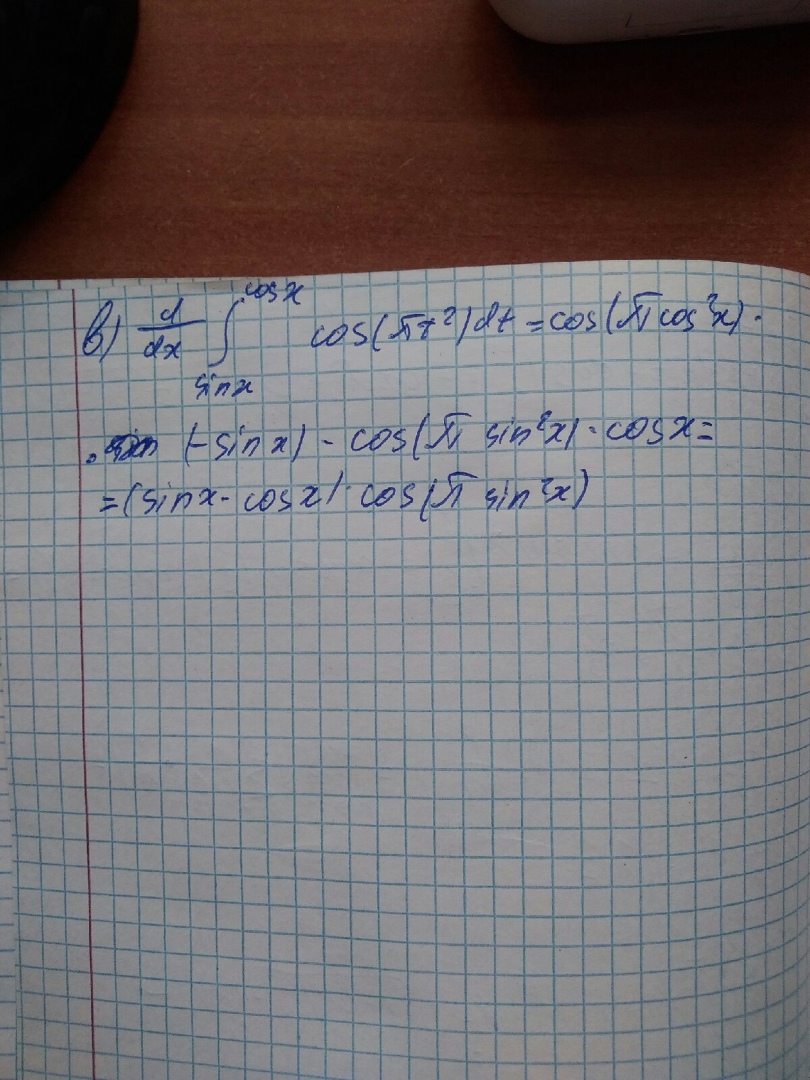 в) d/dx ∫_{sinx}^{cosx} cos(πt²)dt = cos(π cos²x) ·
· (-sinx) - cos(π sin²x) · cosx =
= (sinx - cosx) · cos(π sin²x)